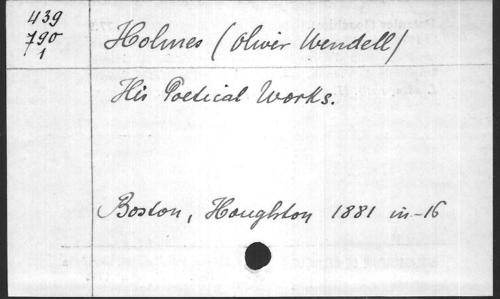 439
790
1
Holmes (Oliver Wendell)
His Poetical Works.
Boston, Houghton 1881 in-16